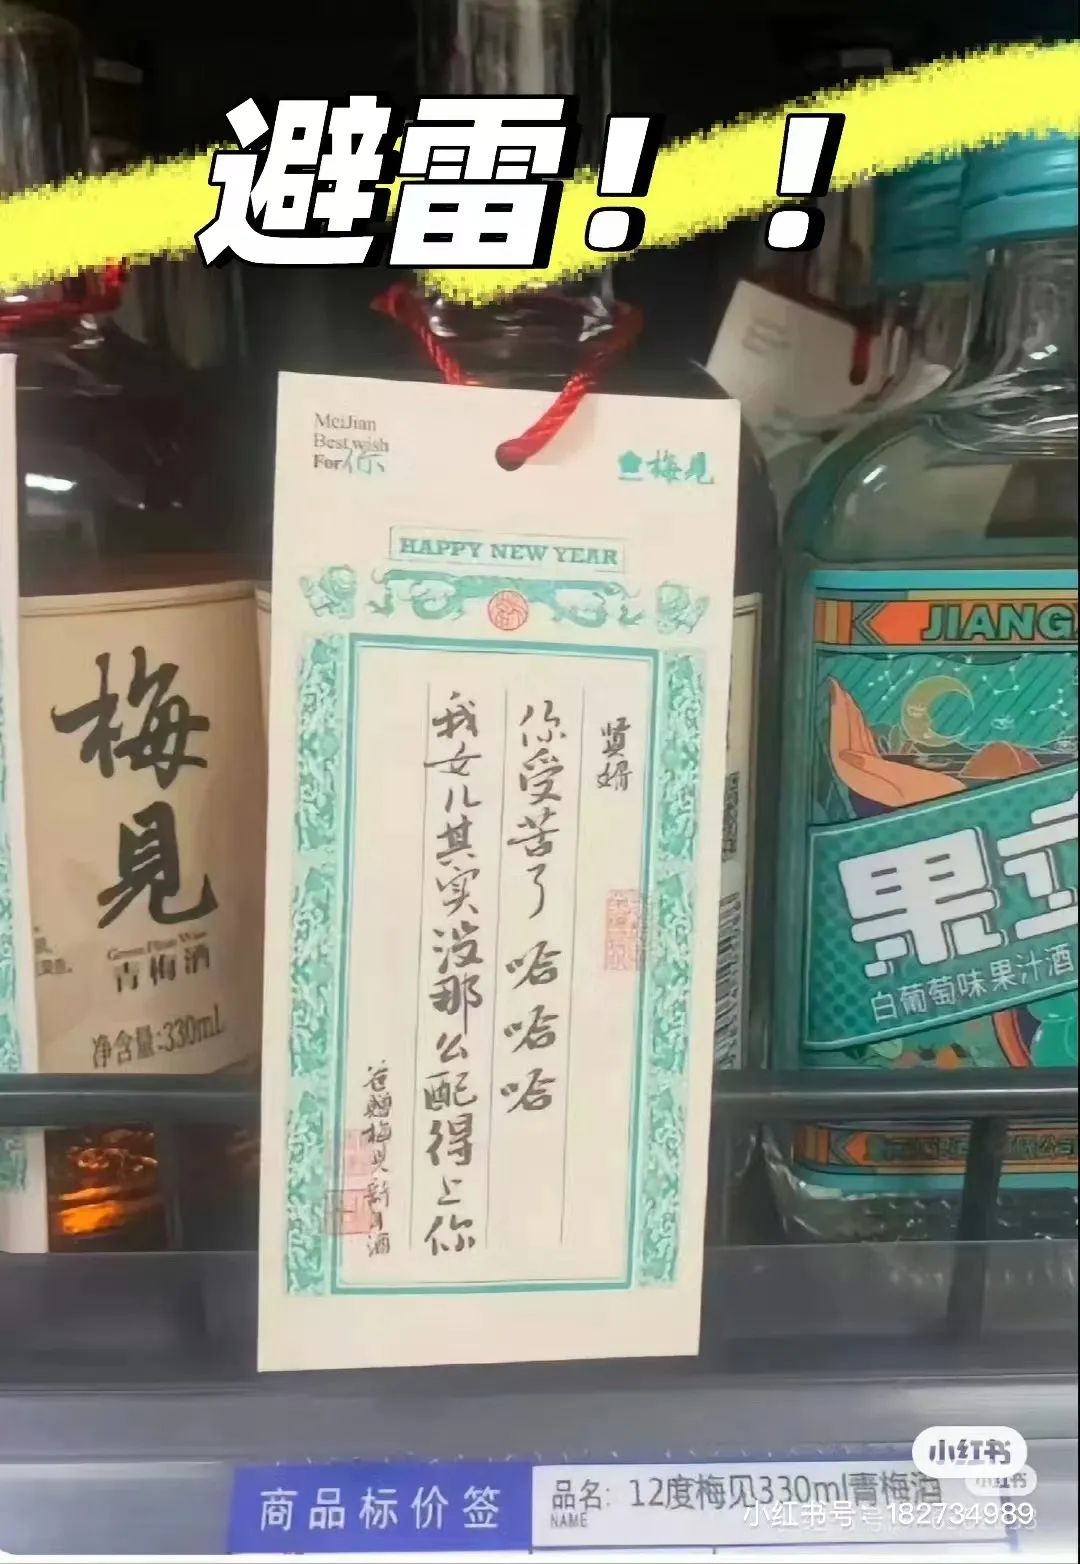 避雷！！
MeiJian
Best wish
For你
梅見
HAPPY NEW YEAR
贤婿
你受苦了哈哈哈
我女儿其实没那么配得上你
爸赠梅见新年酒
梅見
Green Plum Wine
青梅酒
净含量:330mL
JIANG
果立
白葡萄味果汁酒
商品标价签
品名: 12度梅见330ml青梅酒
NAME
小红书
小红书
小红书号: 182734989